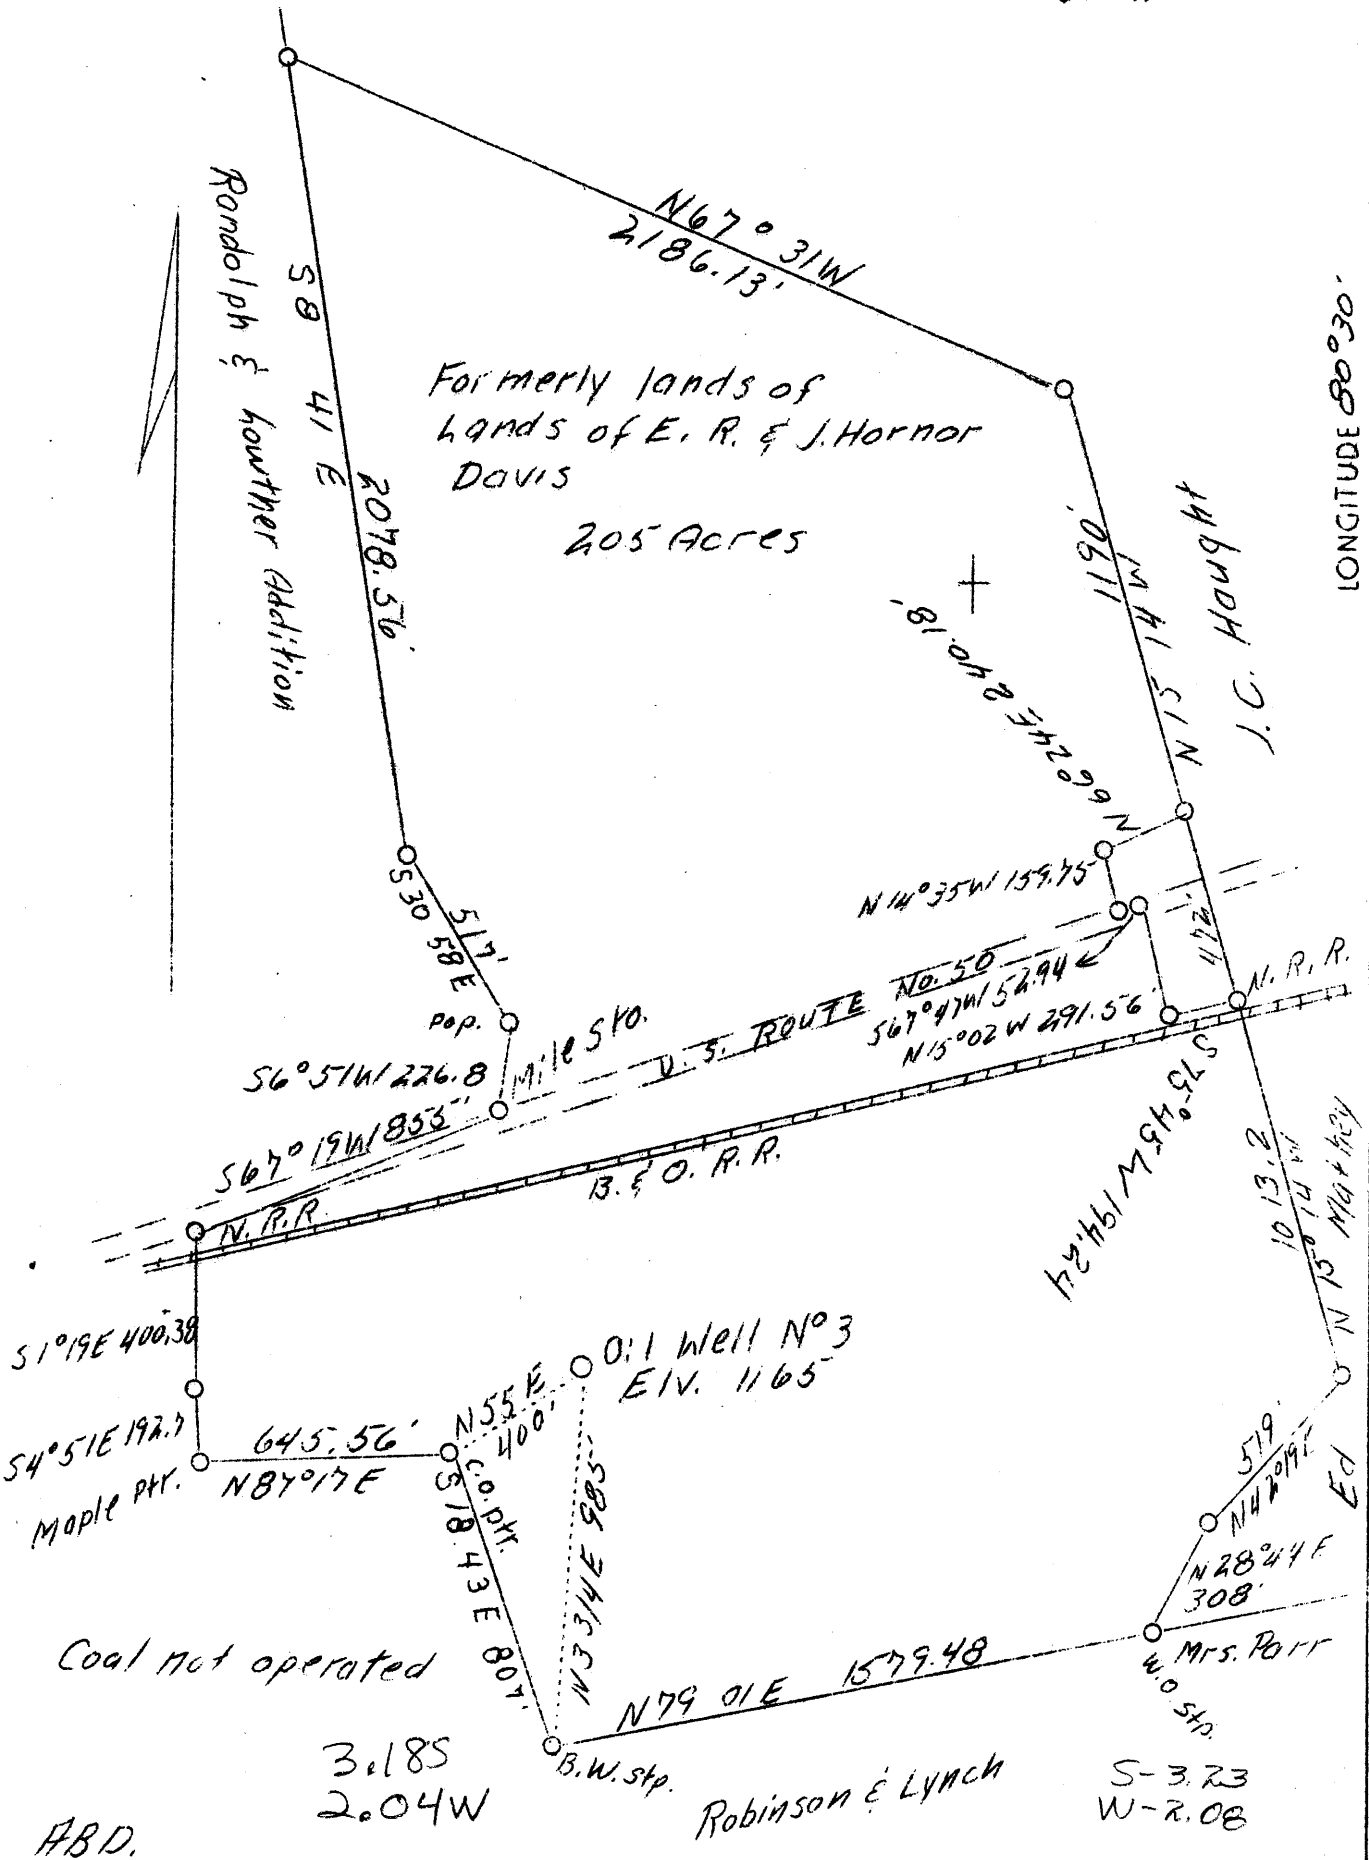 N67° 31W
2186.13'
Randolph & Lowther Addition
S8 41 E
2078.56'
Formerly lands of
Lands of E. R. & J. Hornor
Davis
205 Acres
LONGITUDE 80°30'
1190'
N 15 14 W
J.C. Haught
N 66°24E 240.18'
N 14°35W 159.75
472'
S30 58E
517'
Pop.
S6°51W 226.8
Mile Sto.
U.S. ROUTE No. 50
S67°47W 52.94
N15°02W 291.56'
N.R.R.
S67°19W 855'
N.R.R.
B. & O. R.R.
S 75° 45W 194.24
1013.2
N 15° 14W
Ed Mathey
S1°19E 400.38
S4°51E 192.7
Maple Ptr.
645.56'
N87°17E
N55E
400'
C.O. ptr.
Oil Well No 3
Elv. 1165
S 18 43 E 807'
N3 31/4E 985'
519'
N42°19E
N28°44E
308'
Mrs. Parr
W.O. Stp.
Coal not operated
N79 01E 1579.48
B.W. stp.
Robinson & Lynch
3.18S
2.04W
S-3.23
W-2.08
ABD.